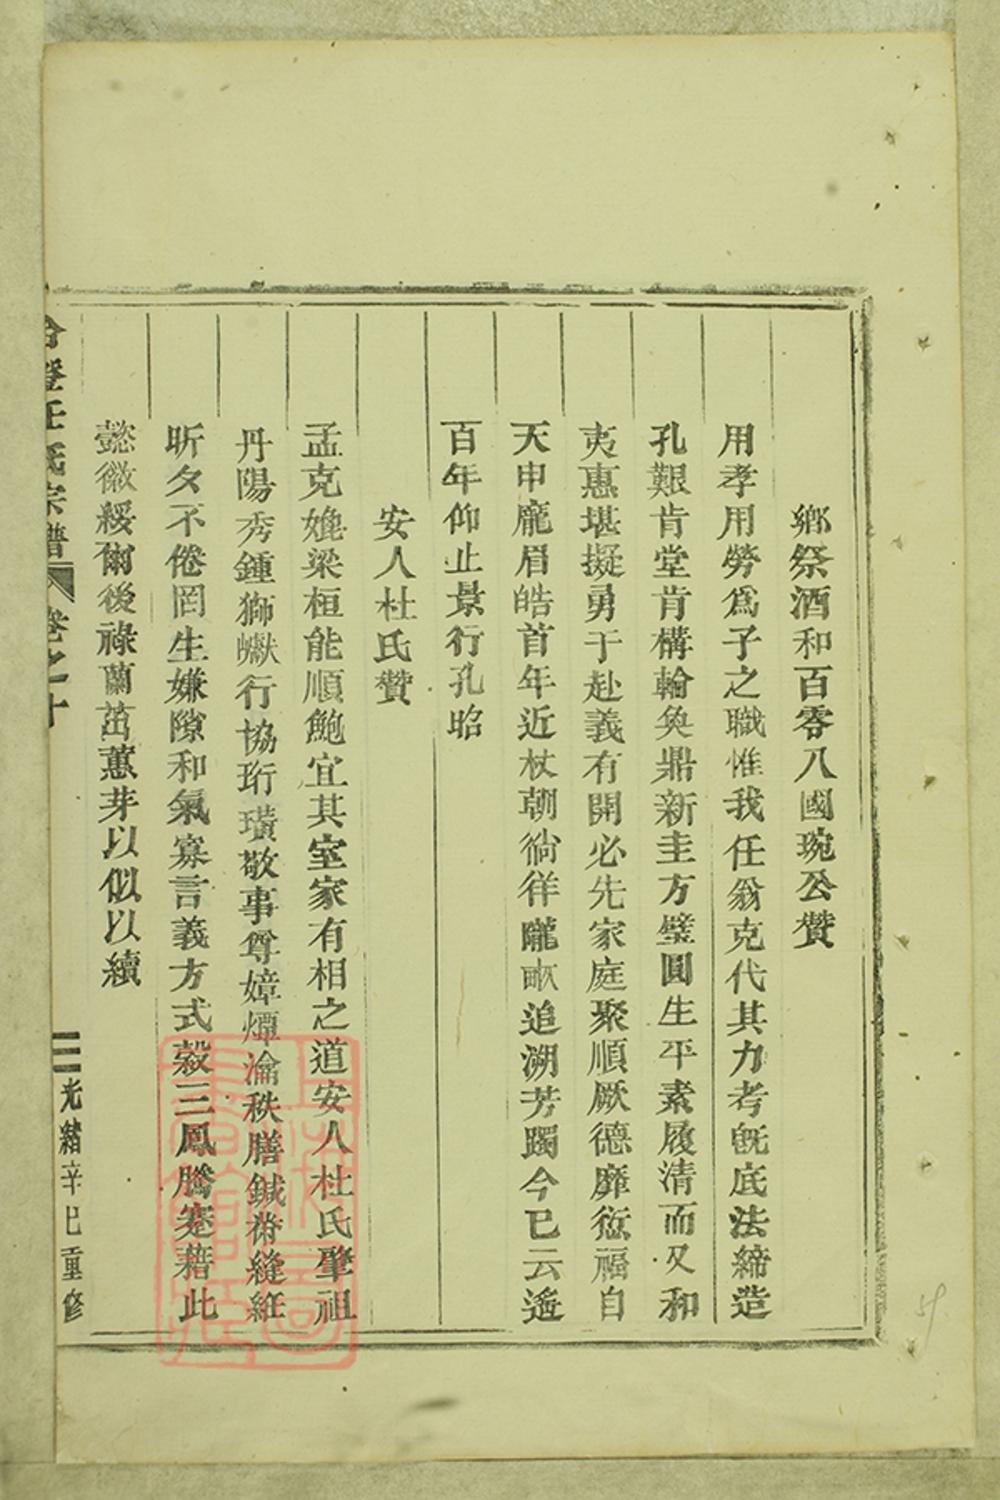 鄉祭酒和百零八國琬公贊
用孝用勞爲子之職惟我任翁克代其力考旣底法締造
孔艱肯堂肯構輪奐鼎新圭方璧圓生平素履清而又和
夷惠堪擬勇于赴義有開必先家庭聚順厥德靡愆福自
天申龐眉皓首年近杖朝徜徉隴畝追溯芳躅今已云遙
百年仰止景行孔昭
安人杜氏贊
孟克媲梁桓能順鮑宜其室家有相之道安人杜氏肇祖
丹陽秀鍾獅巘行協珩璜敬事尊嫜燂瀹秩膳鍼黹縫紝
昕夕不倦罔生嫌隙和氣寡言義方式穀三鳳騰騫藉此
懿徽綏爾後祿蘭茁蕙芽以似以續
澄任氏宗譜 卷之十
三 光緒辛巳重修